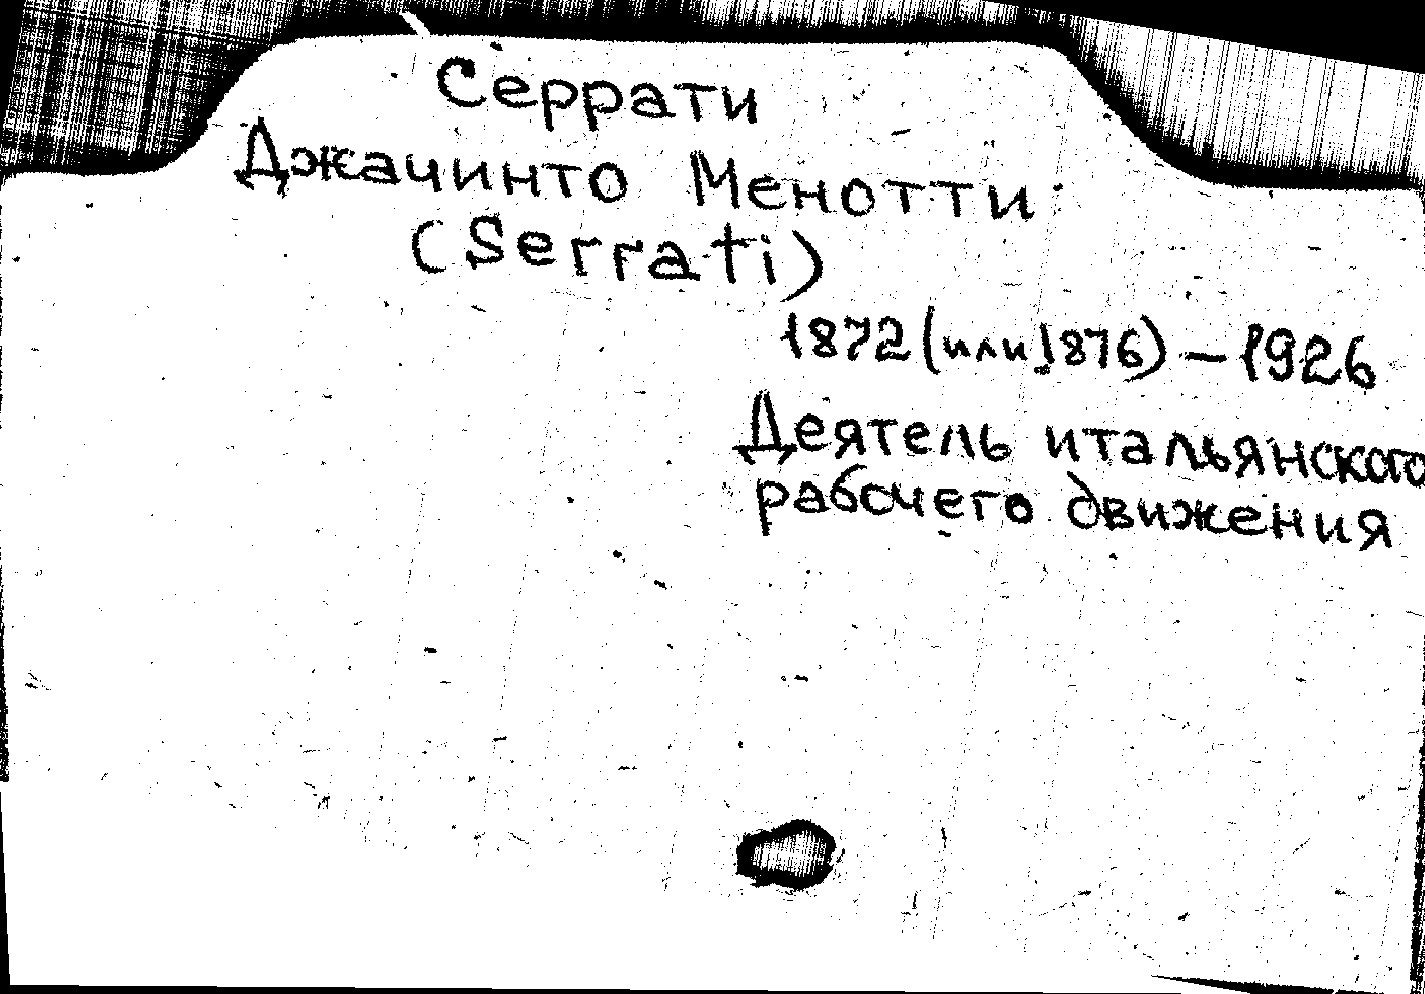 Серрати
Джачинто Менотти
(Serrati)
1872 (или 1876) – 1926
Деятель итальянского
рабочего движения